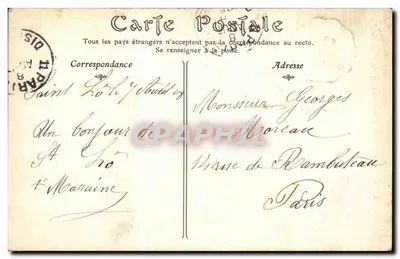 Carte Postale
Tous les pays étrangers n'acceptent pas la correspondance au recto.
Se renseigner à la poste.
Correspondance
Adresse
Saint Lô le 7 Août 09
Un bonjour de
St Lô
Maraine
Monsieur Georges
Moreau
14 rue de Rambuteau
Paris
CPAPHIL
11 PARI
DIS